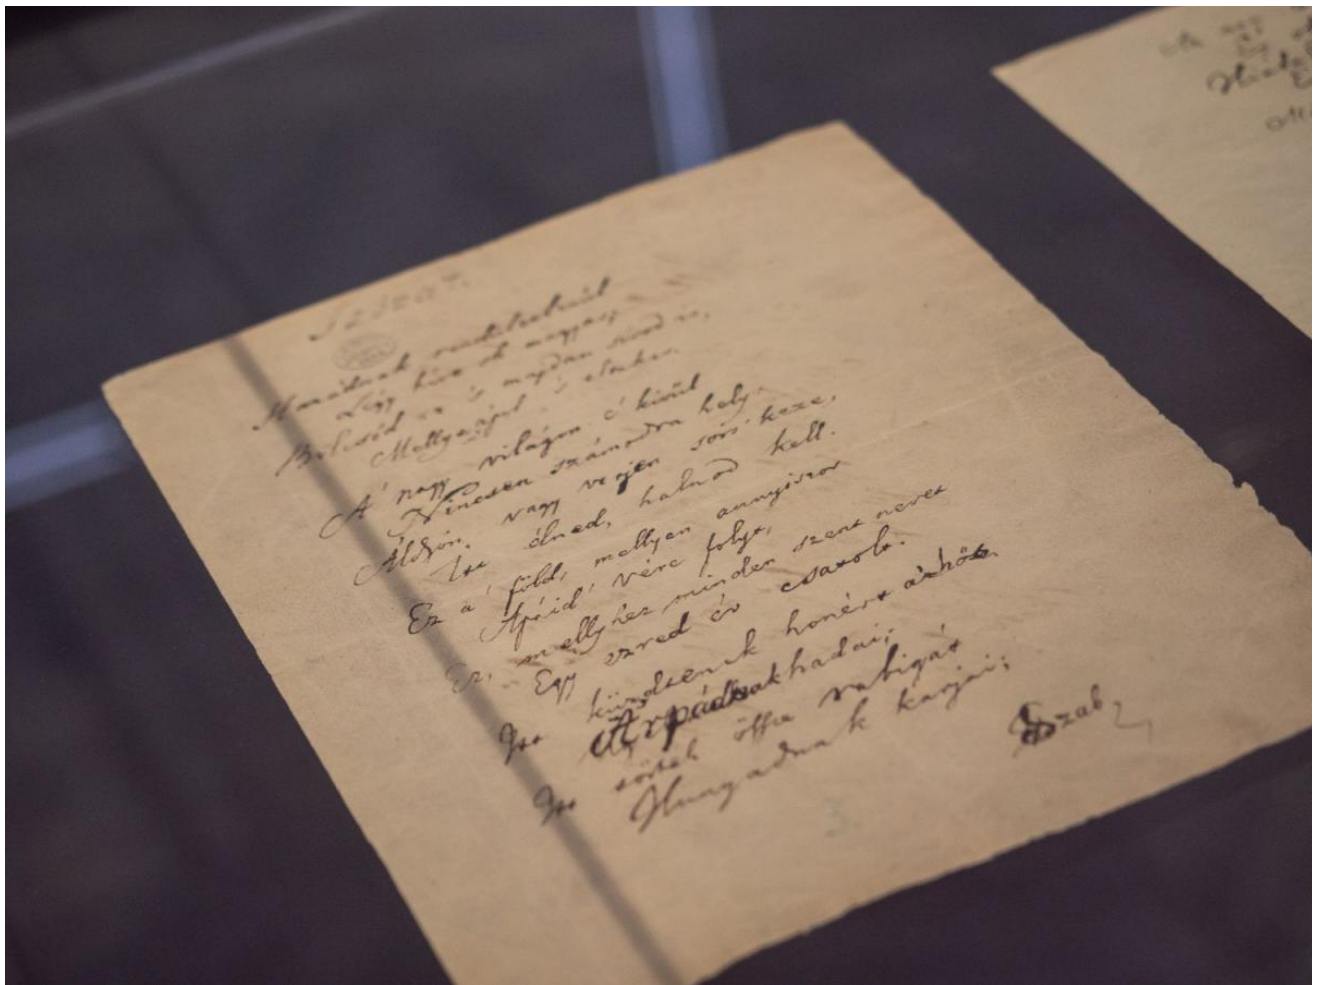 Szózat.
Hazádnak rendűletlenűl
Légy híve oh magyar;
Bölcsőd ez 's majdan sirod is,
Melly ápol 's eltakar.
A' nagy világon e' kivűl
Nincsen számodra hely.
Áldjon, vagy verjen sors' keze,
Itt élned, halnod kell.
Ez a' föld, mellyen annyiszor
Apáid' vére folyt,
Ez, mellyhez minden szent nevet
Egy ezred év csatolt.
Itt küzdtenek honért a' hős
Árpádnak hadai;
Itt törtek össze rabigát
Hunyadnak karjai;
Szab
3.